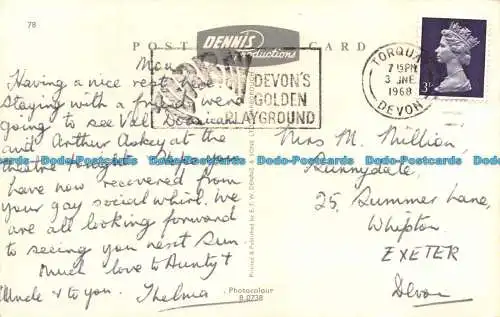 78
POST CARD
DENNIS
Productions
TORQUAY
7 15 PM
3 JNE
1968
DEVON
3D
TORBAY
DEVON'S
GOLDEN
PLAYGROUND
Mon.
Having a nice rest here.
Staying with a friend, were
going to see Val Doonican
and Arthur Askey at the
theatre tonight. Hope you
have now recovered from
your gay social whirl. We
are all looking forward
to seeing you next Sun.
Much love to Aunty +
Uncle + to you. Thelma
Miss M. Million,
Sunnydale,
25, Summer Lane,
Whipton,
EXETER
Devon
Photocolour
B.0738
Printed & Published by E.T.W. DENNIS & SONS
Bado-Postcards Todo-Postcards Todo-Postcards Todo-Postcards